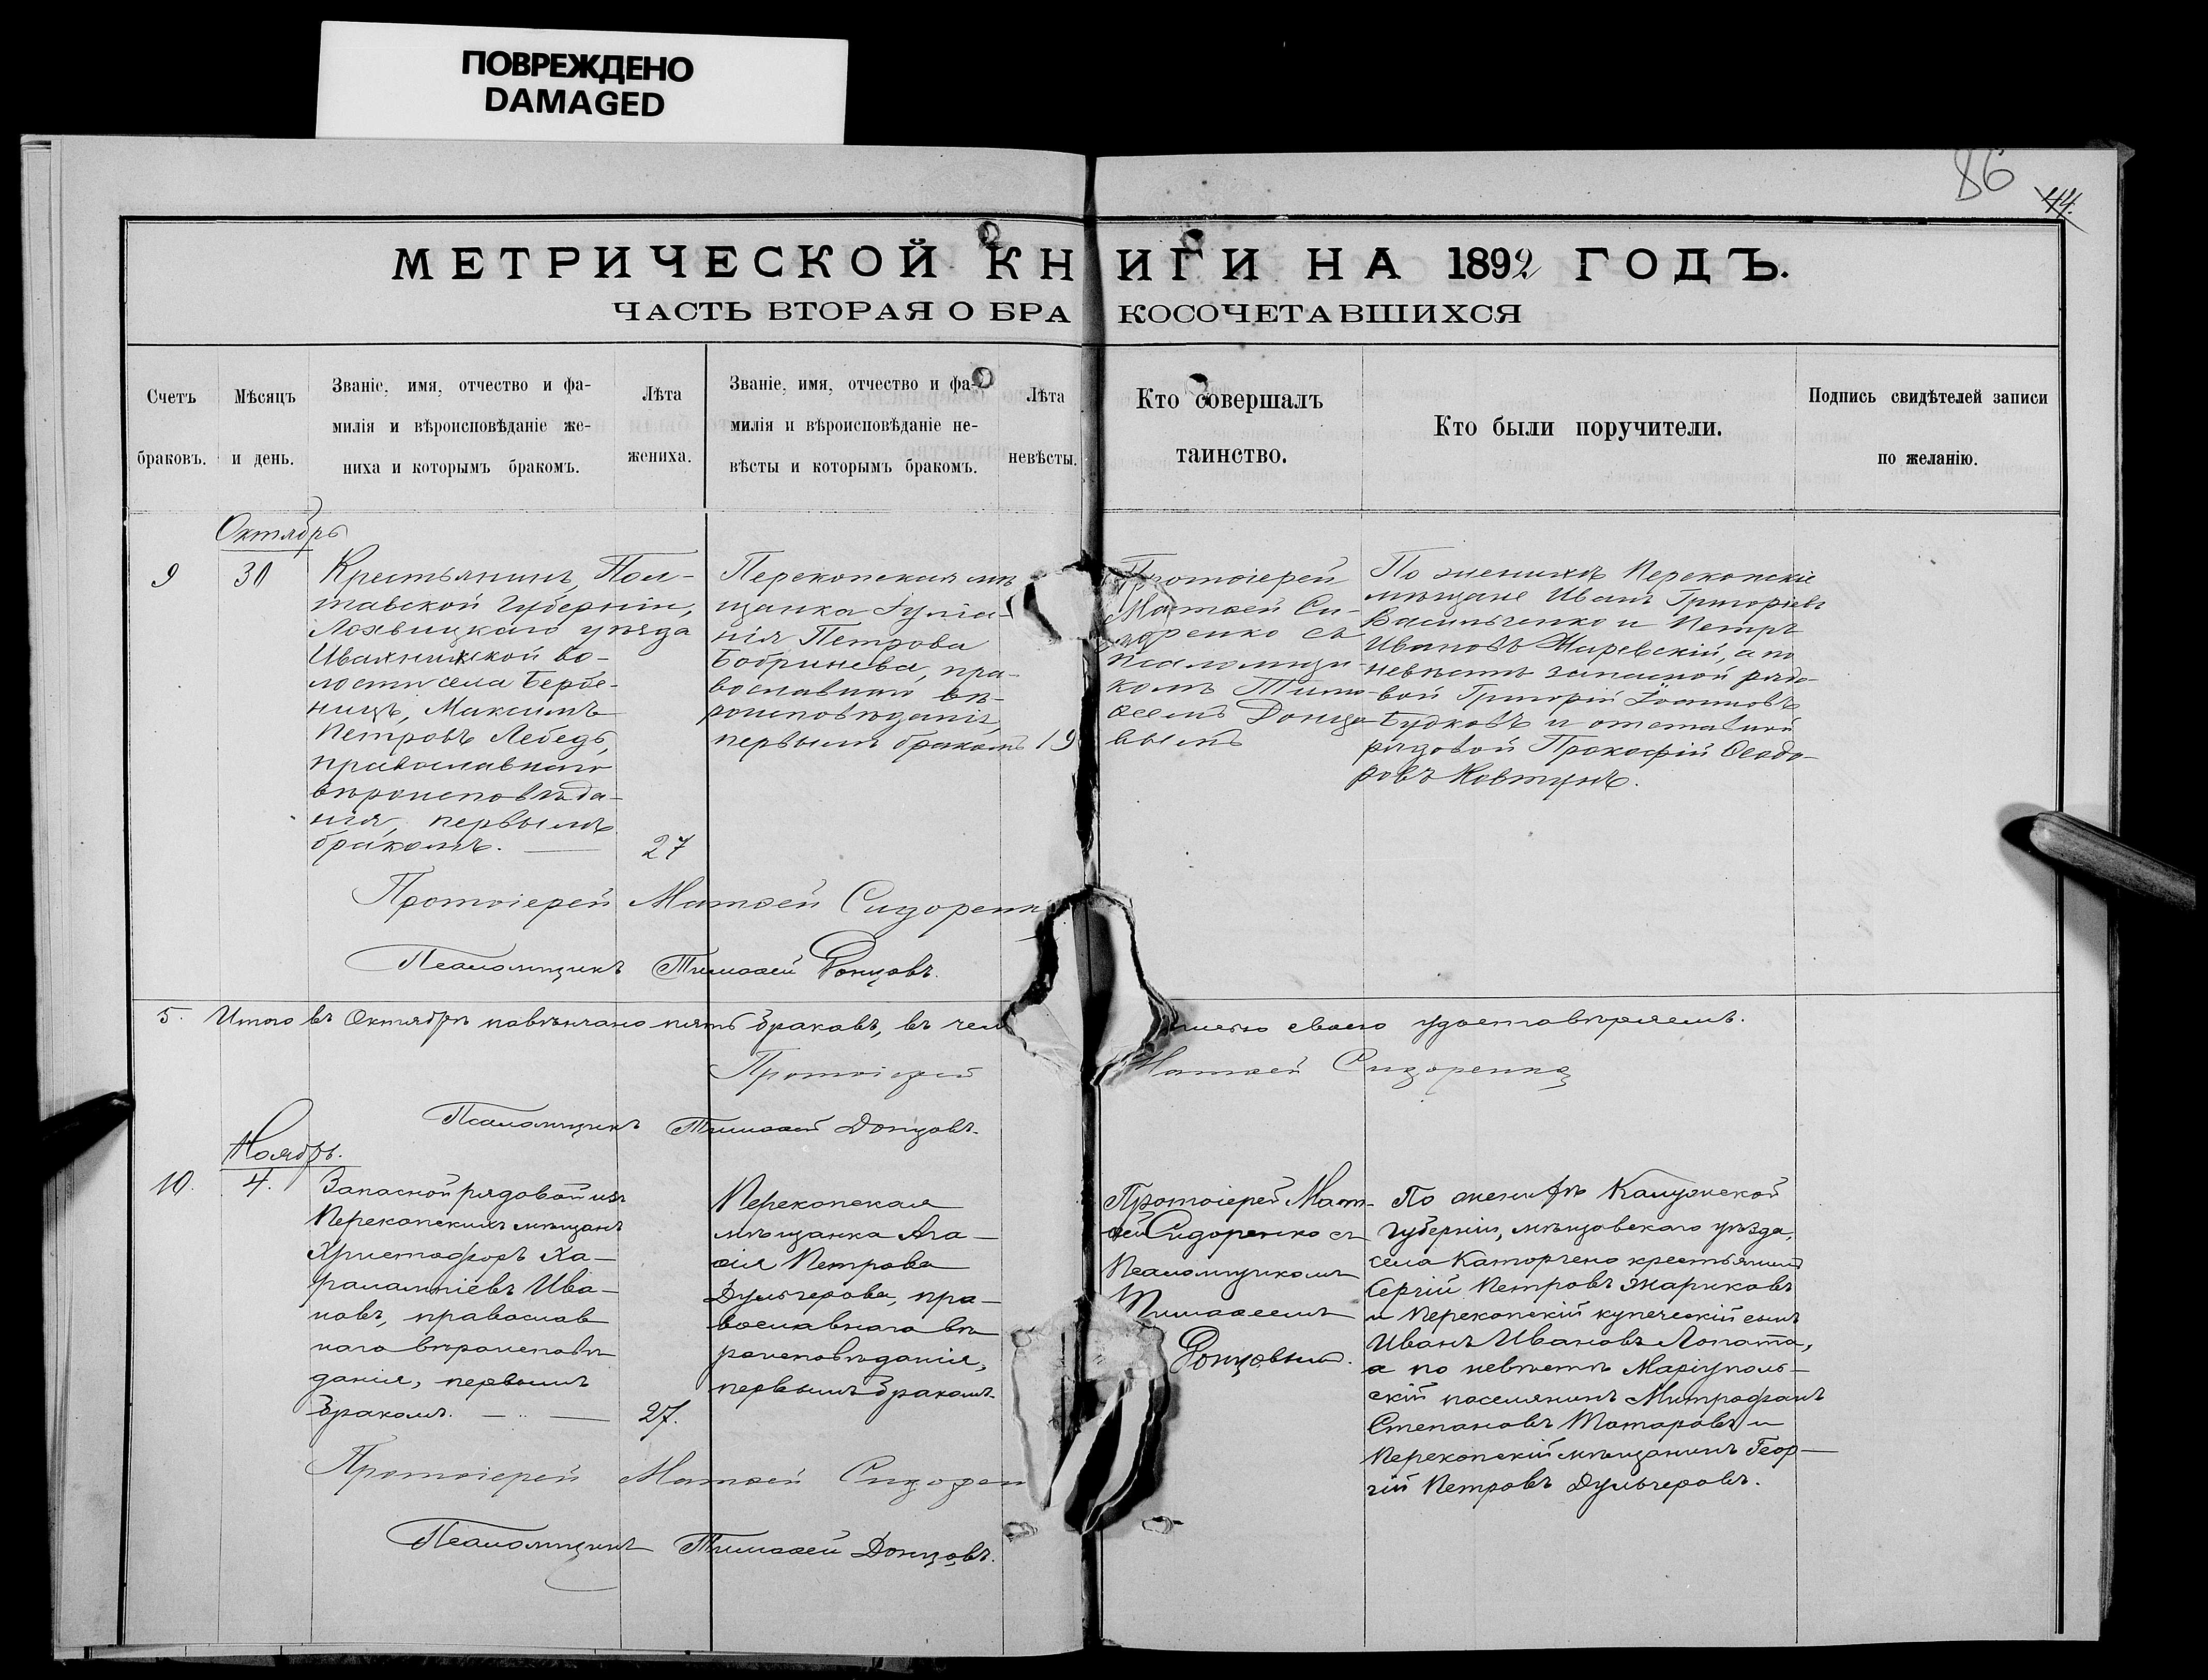 ПОВРЕЖДЕНО
DAMAGED
86
44.
МЕТРИЧЕСКОЙ КНИГИ НА 1892 ГОДЪ.
ЧАСТЬ ВТОРАЯ О БРАКОСОЧЕТАВШИХСЯ
Счетъ
браковъ.
Мѣсяцъ
и день.
Званіе, имя, отчество и фа-
милія и вѣроисповѣданіе же-
ниха и которымъ бракомъ.
Лѣта
жениха.
Званіе, имя, отчество и фа-
милія и вѣроисповѣданіе не-
вѣсты и которымъ бракомъ.
Лѣта
невѣсты.
Кто совершалъ
таинство.
Кто были поручители.
Подпись свидѣтелей записи
по желанію.
Октябрь
9
30
Крестьянинъ, Пол-
тавской Губерніи,
Лохвицкаго уѣзда
Ивахникской во-
лости села Бербе-
ницъ, Максимъ
Петровъ Лебедь,
православнаго
вѣроисповѣда-
нія, первымъ
бракомъ.
27
Перекопская мѣ
щанка Іуліа-
нія Петрова
Бобринева, пра-
вославнаго вѣ-
роисповѣданія,
первымъ бракомъ
19
Протоіерей
Матѳей Си-
доренко съ
псаломщи-
комъ Тимо-
ѳеемъ Донцо-
вымъ
По женихѣ Перекопскіе
мѣщане Иванъ Григорьевъ
Васильченко и Петръ
Ивановъ Жаревскій, а по
невѣстѣ запасной рядо-
вой Григорій Іоанновъ
Будковъ и отставной
рядовой Прокофій Ѳеодо-
ровъ Ковтунъ.
Протоіерей Матѳей Сидоренк
Псаломщикъ Тимоѳей Донцовъ.
5. Итого въ Октябрѣ повѣнчано пять браковъ, въ чем
своею удостовѣряемъ.
Протоіерей Матѳей Сидоренко
Псаломщикъ Тимоѳей Донцовъ.
Ноябрь.
10.
4.
Запасной рядовой изъ
Перекопскихъ мѣщанъ
Христофоръ Ха-
рлампіевъ Ива-
новъ, православ
наго вѣроисповѣ
данія, первымъ
бракомъ.
27.
Перекопская
мѣщанка Ага-
ѳія Петрова
Дульгерова, пра-
вославнаго вѣ
роисповѣданія,
первымъ бракомъ
Протоіерей Матѳ-
ѳей Сидоренко съ
Псаломщикомъ
Тимоѳеемъ
Донцовымъ.
По женихѣ Калужской
Губерніи, мѣщовскаго уѣзда,
села крестьянинъ
Сергій Петровъ Жариковъ
и Перекопскій купеческій сынъ
Иванъ Ивановъ Лопата,
а по невѣстѣ Маріуполь-
скій поселянинъ Митрофанъ
Степановъ Татаровъ и
Перекопскій мѣщанинъ Геор-
гій Петровъ Дульгеровъ.
Протоіерей Матѳей Сидорен
Псаломщикъ Тимоѳей Донцовъ.